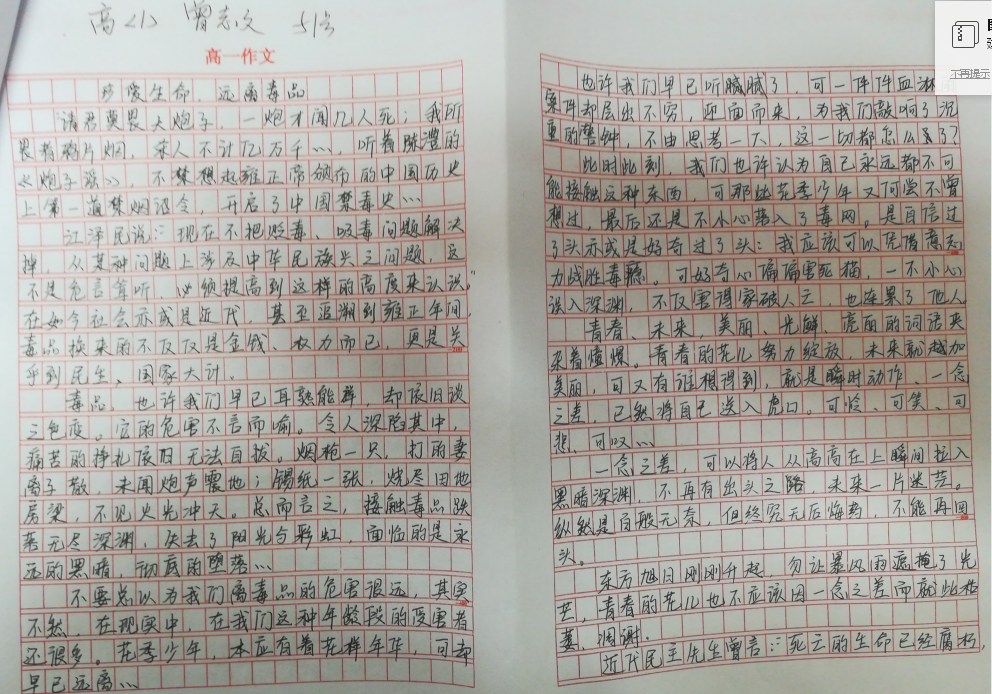 高〈1〉 曾志文 51名
高一作文
珍爱生命、远离毒品
请君莫畏大炮子，一炮才闻几人死；我所
畏者鸦片烟，杀人不计亿万千…，听着陈澧的
《炮子谣》，不禁想起雍正帝颁布的中国历史
上第一道禁烟诏令，开启了中国禁毒史…
江泽民说：：现在不把贩毒、吸毒问题解决
掉，从某种问题上涉及中华民族兴之问题，这
不是危言耸听，必须提高到这样的高度来认识。”
在如今社会亦或是近代，甚至追溯到雍正年间，
毒品换来的不仅仅是金钱、权力而已，更是关
乎到民生、国家大计。
毒品，也许我们早已耳熟能群，却依旧谈
之色变。它的危害不言而喻。令人深陷其中，
痛苦的挣扎依旧无法自拔。烟枪一只，打的妻
离子散，未闻炮声震地；锡纸一张，烧尽田地
房梁，不见火光冲天。总而言之，接触毒品跌
落无尽深渊，失去了阳光与彩虹，面临的是永
远的黑暗，彻底的堕落…
不要总以为我们离毒品的危害很远，其实
不然，在现实中，在我们这种年龄段的受害者
还很多。花季少年，本应有着花样年华，可却
早已远离…
也许我们早已听腻腻了，可一件件血淋
案件却层出不穷，迎面而来，为我们敲响了沉
重的警钟，不由思考一下，这一切都怎么了？
此时此刻，我们也许认为自己永远都不可
能接触这种东西，可那些花季少年又何尝不曾
想过，最后还是不小心落入了毒网。是自信过
了头亦或是好奇过了头：我应该可以凭借意志
力战胜毒瘾。可好奇心偏偏害死猫，一不小心
误入深渊，不仅害得家破人亡，也连累了他人
青春、未来，美丽、光鲜、亮丽的词语夹
杂着憧憬。青春的花儿努力绽放，未来就越加
美丽，可又有谁想得到，就是瞬时动作、一念
之差，已然将自己送入虎口。可怜、可笑、可
悲、可叹…
一念之差，可以将人从高高在上瞬间拉入
黑暗深渊，不再有出头之路，未来一片迷茫。
纵然是百般无奈，但终究无后悔药，不能再回
头。
东方旭日刚刚升起，勿让暴风雨遮掩了光
芒，青春的花儿也不应该因一念之差而就此枯
萎、凋谢.
近代民主先生曾言：：死亡的生命已经腐朽，
不再提示